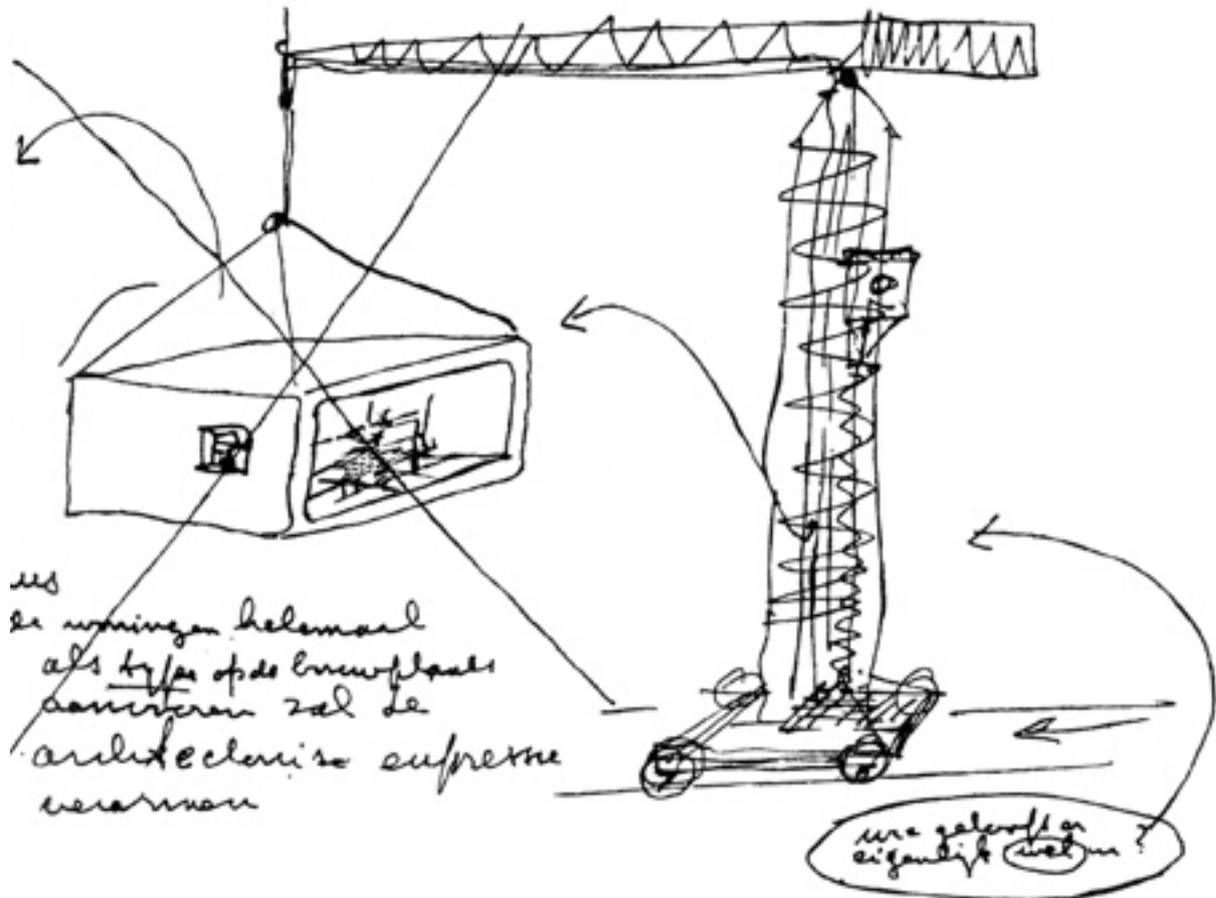 us
de woningen helemaal
als type op de bouwplaats
aanvoeren zal de
architectonise expressie
verarmen
wie gelooft er
eigenlijk wel in?